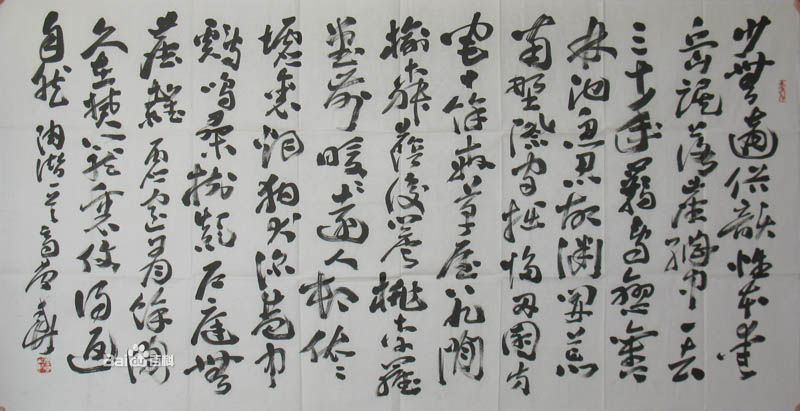 少無適俗韻性本愛
丘山誤落塵網中一去
三十年羈鳥戀舊
林池魚思故淵開荒
南野際守拙歸田園方
宅十餘畝草屋八九間
榆柳蔭後簷桃李羅
堂前曖々遠人村依々
墟里煙狗吠深巷中
雞鳴桑樹顛户庭無
塵雜虛室有餘閒
久在樊籠裏復得返
自然 陶潛
Baidu百科